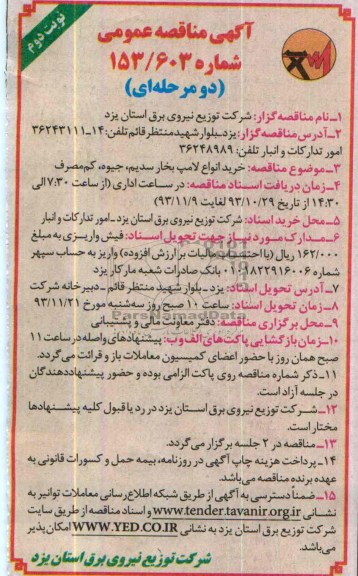 نوبت دوم
آگهی مناقصه عمومی
شماره ۱۵۳/۶۰۳
(دو مرحله‌ای)
۱ـ نام مناقصه‌گزار: شرکت توزیع نیروی برق استان یزد
۲ـ آدرس مناقصه‌گزار: یزد ـ بلوار شهید منتظر قائم تلفن: ۱۴ـ۳۶۲۴۳۱۱۱
امور تدارکات و انبار تلفن: ۳۶۲۴۸۹۸۹
۳ـ موضوع مناقصه: خرید انواع لامپ بخار سدیم، جیوه، کم‌مصرف
۴ـ زمان دریافت اسناد مناقصه: در ساعت اداری (از ساعت ۷:۳۰ الی
۱۴:۳۰ از تاریخ ۹۳/۱۰/۲۹ لغایت ۹۳/۱۱/۹)
۵ـ محل خرید اسناد: شرکت توزیع نیروی برق استان یزد ـ امور تدارکات و انبار
۶ـ مدارک مورد نیاز جهت تحویل اسناد: فیش واریزی به مبلغ
۱۶۲/۰۰۰ ریال (با احتساب مالیات بر ارزش افزوده) واریز به حساب سپهر
شماره ۰۱۰۱۸۲۲۹۱۶۰۰۶ بانک صادرات شعبه مارکار یزد
۷ـ آدرس تحویل اسناد: یزد ـ بلوار شهید منتظر قائم ـ دبیرخانه شرکت
۸ـ زمان تحویل اسناد: ساعت ۱۰ صبح روز سه‌شنبه مورخ ۹۳/۱۱/۲۱
۹ـ محل برگزاری مناقصه: دفتر معاونت مالی و پشتیبانی
ParsNamadData
۱۰ـ زمان بازگشایی پاکت‌های الف و ب: پیشنهادهای واصله در ساعت ۱۱
صبح همان روز با حضور اعضای کمیسیون معاملات باز و قرائت می‌گردد.
۱۱ـ ذکر شماره مناقصه روی پاکت الزامی بوده و حضور پیشنهاددهندگان
در جلسه آزاد است.
۱۲ـ شرکت توزیع نیروی برق استان یزد در رد یا قبول کلیه پیشنهادها
مختار است.
۱۳ـ مناقصه در ۲ جلسه برگزار می‌گردد.
۱۴ـ پرداخت هزینه چاپ آگهی در روزنامه، بیمه حمل و کسورات قانونی به
عهده برنده مناقصه می‌باشد.
۱۵ـ ضمنا دسترسی به آگهی از طریق شبکه اطلاع‌رسانی معاملات توانیر به
نشانی www.tender.tavanir.org.ir و اسناد مناقصه از طریق سایت
شرکت توزیع برق استان یزد به نشانی WWW.YED.CO.IR امکان‌پذیر
می‌باشد.
شرکت توزیع نیروی برق استان یزد